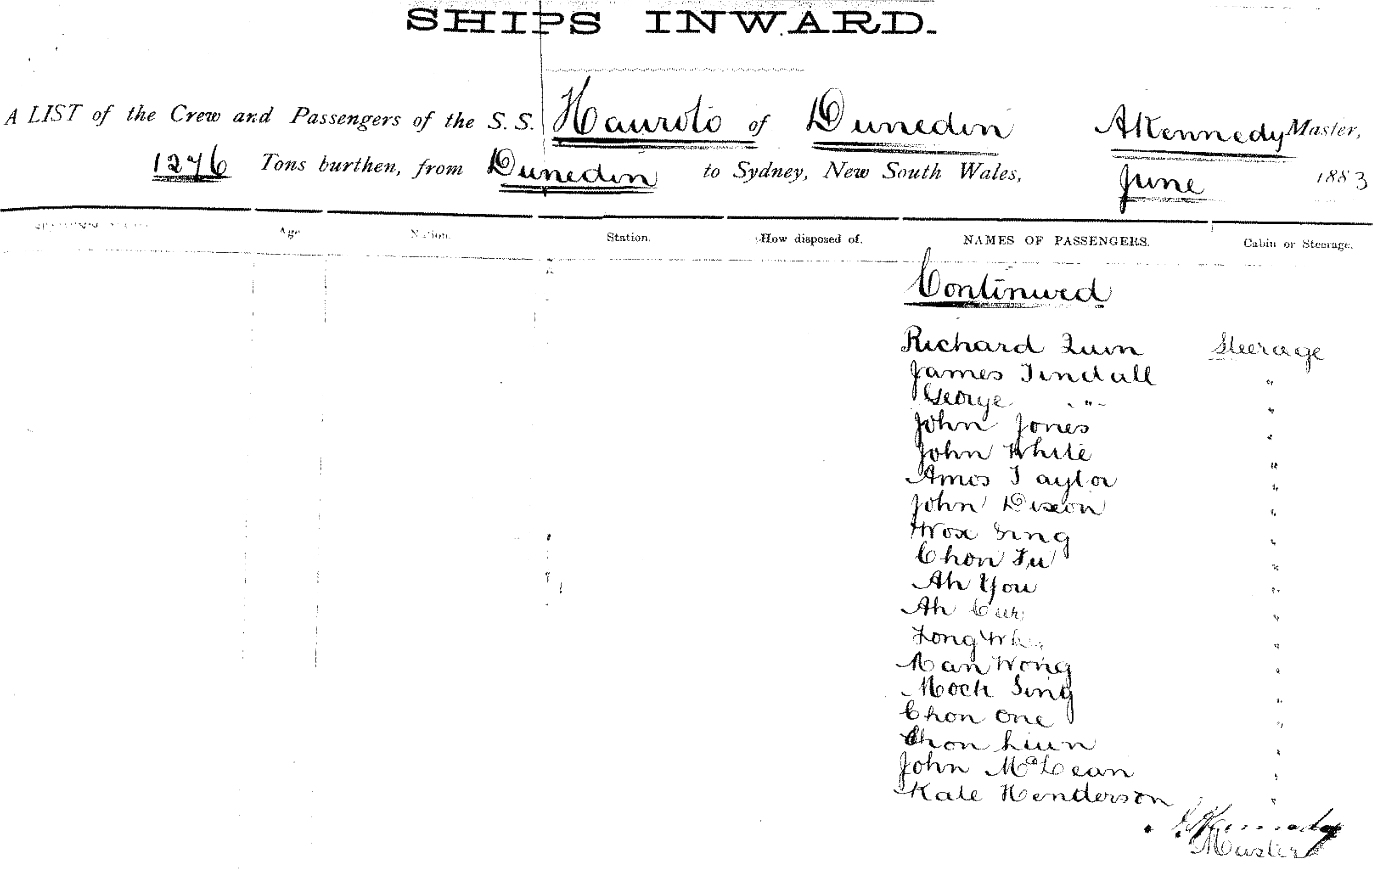 SHIPS INWARD.
A LIST of the Crew and Passengers of the S. S. Hauroto of Dunedin A Kennedy Master,
1276 Tons burthen, from Dunedin to Sydney, New South Wales, June 1883
Age Nation. Station. How disposed of. NAMES OF PASSENGERS. Cabin or Steerage.
Continued
Richard Quin Steerage
James Tindall "
George " "
John Jones "
John White "
Amos Taylor "
John Dixon "
Sing "
Chon Fu "
Ah You "
Ah "
"
Man Wong "
Mock Sing "
Chon One "
Chon Liun "
John McLean "
Kate Henderson "
Kennedy
Master